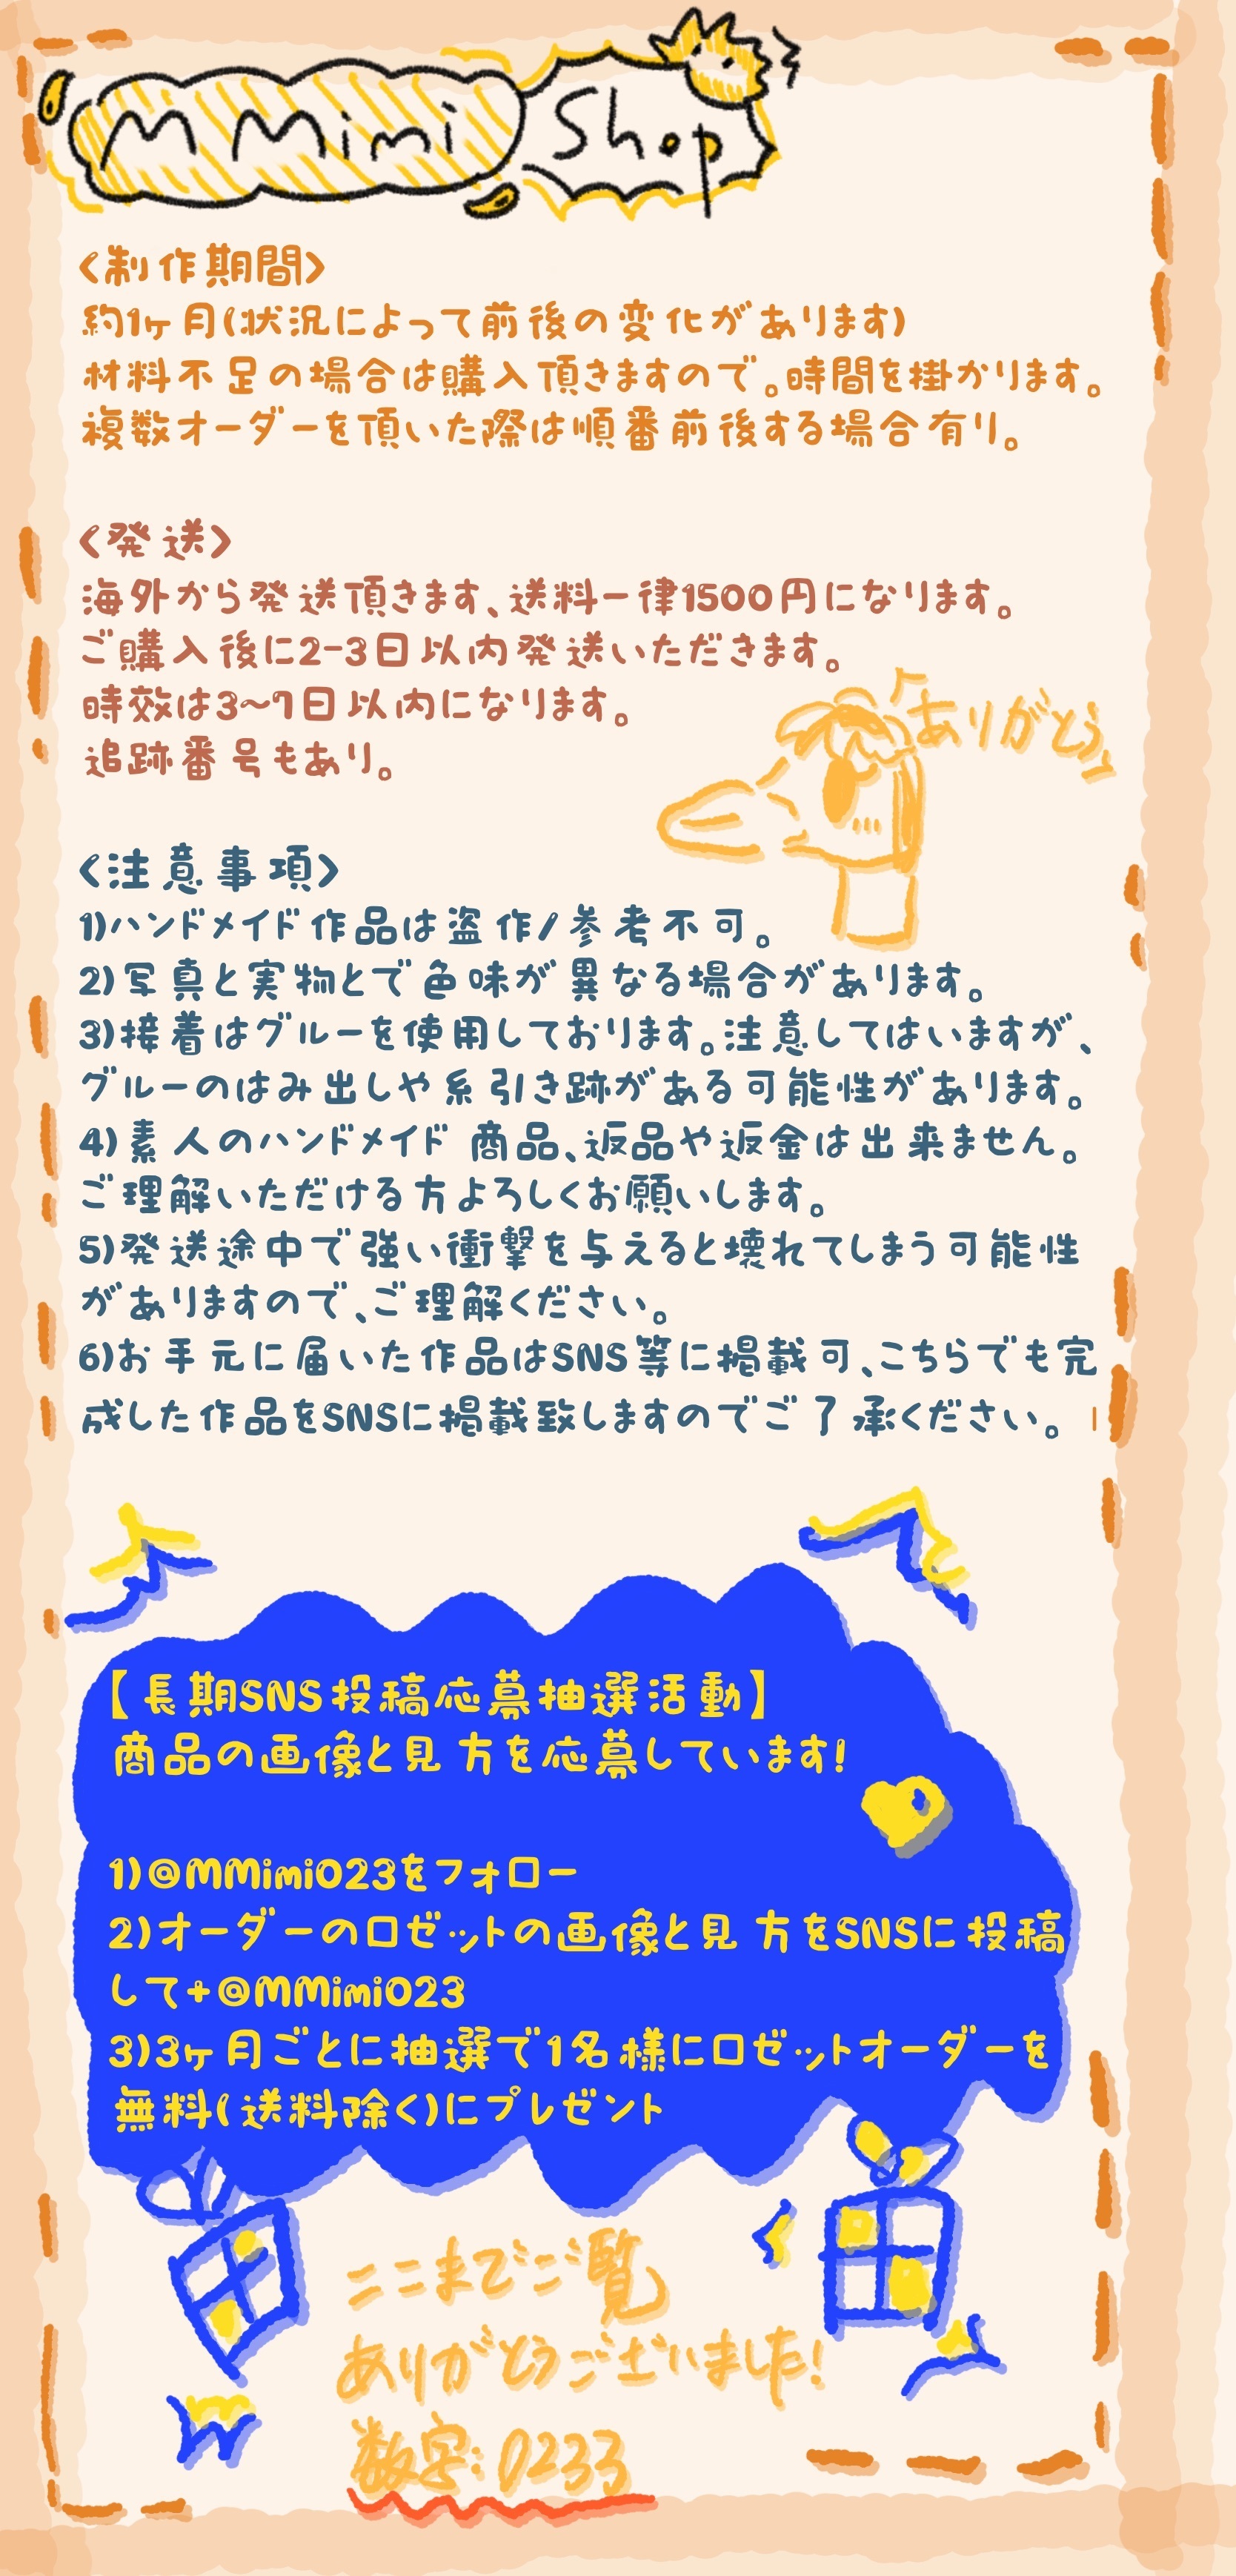 MMimi Shop
<制作期間>
約1ヶ月(状況によって前後の変化があります)
材料不足の場合は購入頂きますので。時間を掛かります。
複数オーダーを頂いた際は順番前後する場合有り。
<発送>
海外から発送頂きます、送料一律1500円になります。
ご購入後に2-3日以内発送いただきます。
時效は3~7日以内になります。
追跡番号もあり。
ありがとう
<注意事項>
1)ハンドメイド作品は盗作/参考不可。
2)写真と実物とで色味が異なる場合があります。
3)接着はグルーを使用しております。注意してはいますが、
グルーのはみ出しや糸引き跡がある可能性があります。
4)素人のハンドメイド商品、返品や返金は出来ません。
ご理解いただける方よろしくお願いします。
5)発送途中で強い衝撃を与えると壊れてしまう可能性
がありますので、ご理解ください。
6)お手元に届いた作品はSNS等に掲載可、こちらでも完
成した作品をSNSに掲載致しますのでご了承ください。
【長期SNS投稿応募抽選活動】
商品の画像と見方を応募しています!
1)@MMimi023をフォロー
2)オーダーのロゼットの画像と見方をSNSに投稿
して+@MMimi023
3)3ヶ月ごとに抽選で1名様にロゼットオーダーを
無料(送料除く)にプレゼント
ここまでご覧
ありがとうございました!
数字:0233